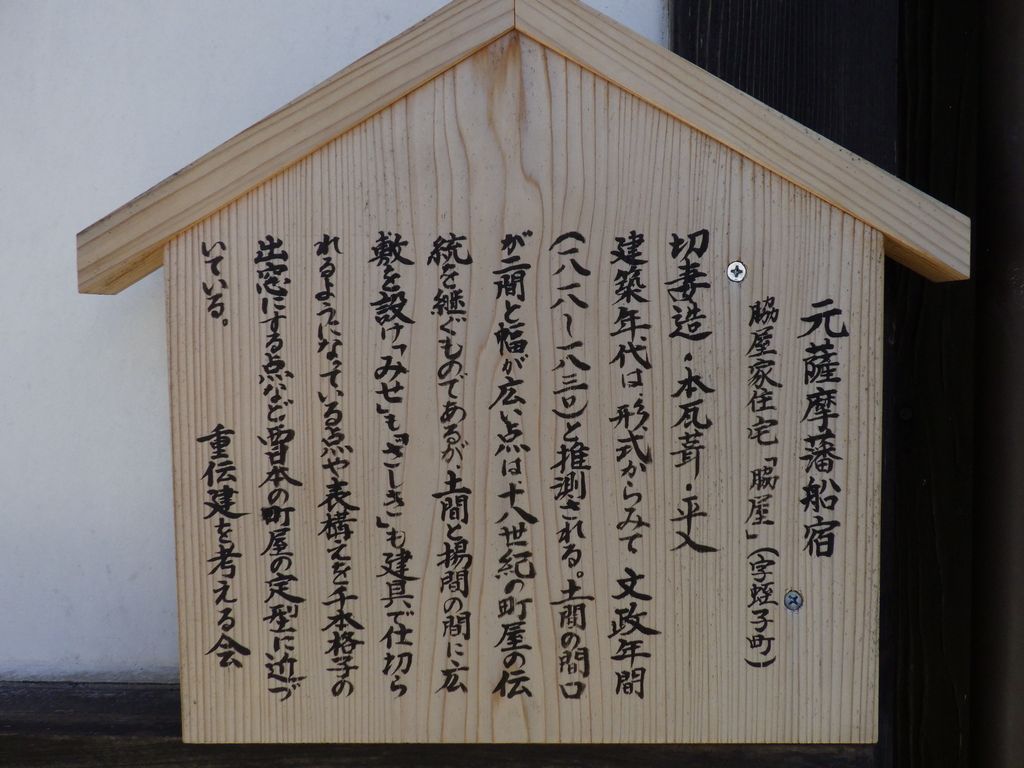 元薩摩藩船宿
脇屋家住宅「脇屋」(字蛭子町)
切妻造・本瓦葺・平入
建築年代は形式からみて文政年間
(一八一八〜一八三〇)と推測される。土間の間口
が二間と幅が広い点は、十八世紀の町屋の伝
統を継ぐものであるが、土間と揚間の間に広
敷を設け「みせ」も「ざしき」も建具で仕切ら
れるようになっている点や表構えを千本格子の
出窓にする点など西日本の町屋の定型に近づ
いている。
重伝建を考える会